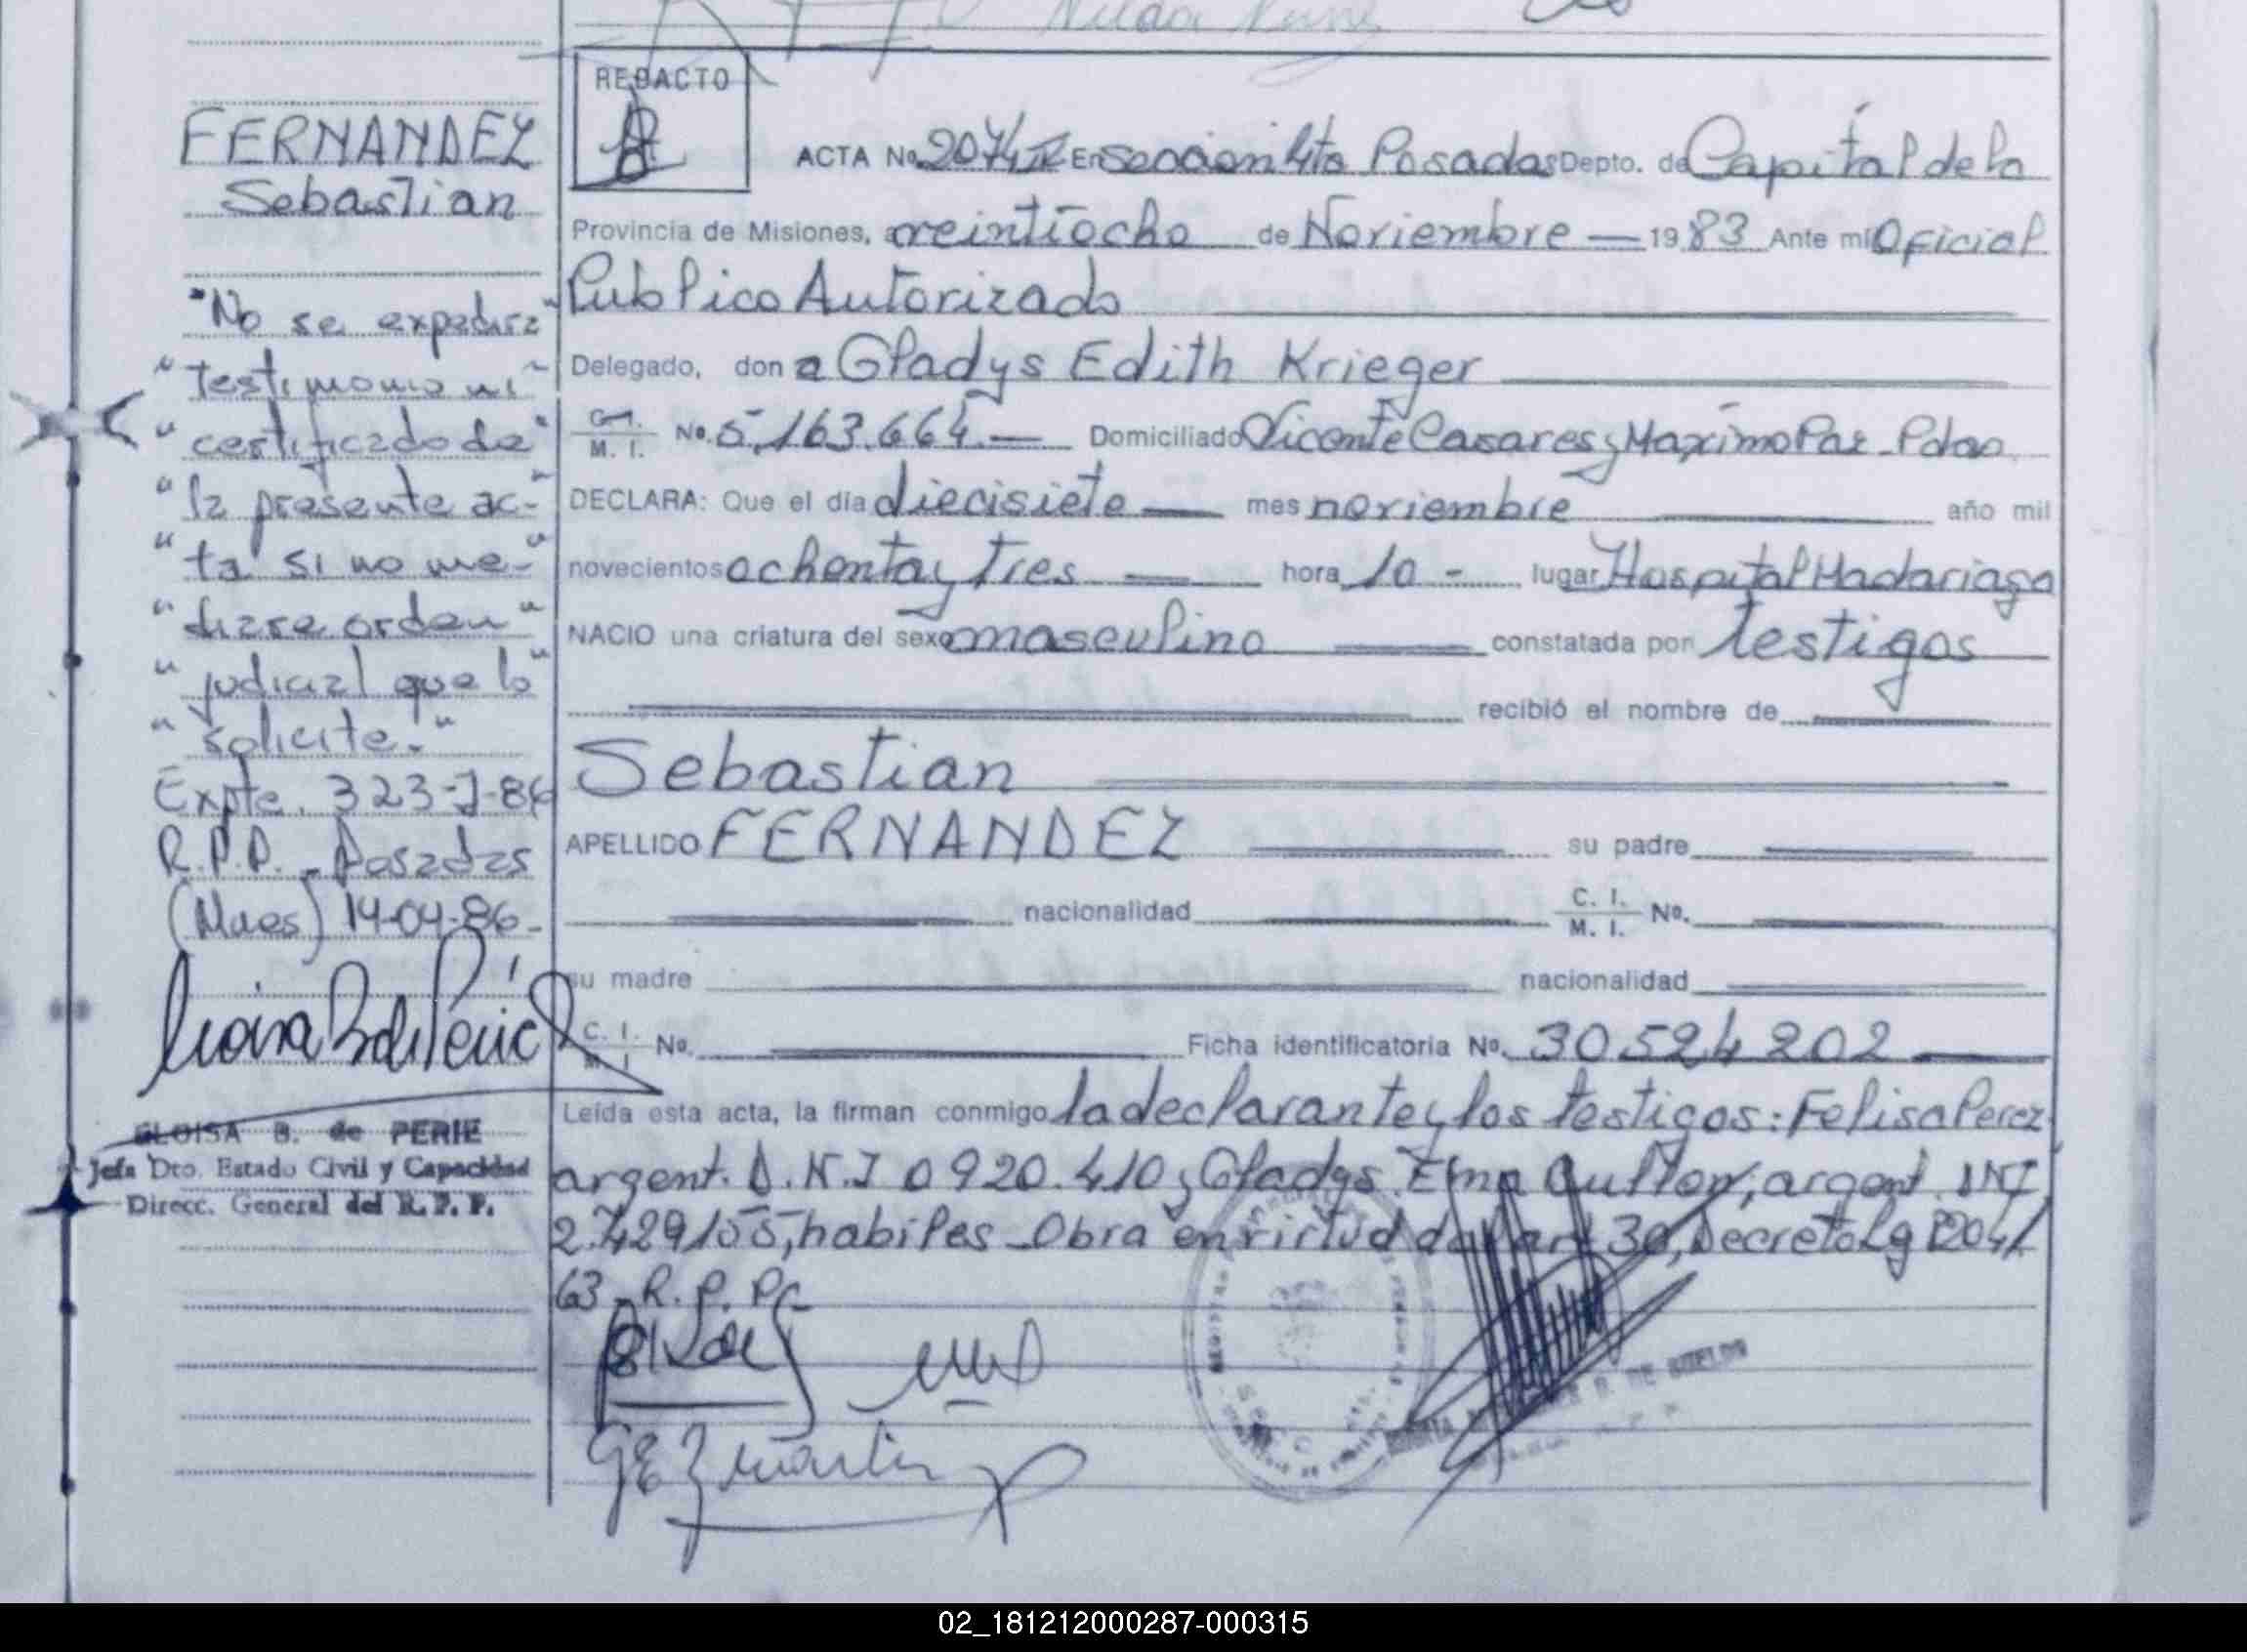 REDACTO
FERNANDEZ
Sebastian
"No se expedira"
"testimonio ni"
"certificado de"
"la presente ac-"
"ta si no me-"
"diare orden"
"judicial que lo"
"solicite."
Expte. 323-J-86
R.P.P. - Posadas
(Mnes) 14-04-86-
ELOISA B. de PERIE
Jefa Dto. Estado Civil y Capacidad
Direcc. General del R. P. P.
ACTA No. 2074 En seccion 4ta Posadas Depto. de Capital de la
Provincia de Misiones, a veintiocho de Noviembre — 1983 Ante mi Oficial
Publico Autorizado
Delegado, don a Gladys Edith Krieger
C. I. M. I. No. 5.163.664.— Domiciliado Vicente Casares y Maximo Paz - Pdas
DECLARA: Que el día diecisiete — mes noviembre año mil
novecientos ochenta y tres — hora 10 - lugar Hospital Madariaga
NACIO una criatura del sexo masculino — constatada por testigos
recibió el nombre de
Sebastian
APELLIDO FERNANDEZ su padre
nacionalidad C. I. M. I. No.
su madre nacionalidad
C. I. M. I No. Ficha identificatoria No. 30524202 —
Leída esta acta, la firman conmigo la declarante y los testigos: Felisa Perez
argent. D.N.I 0920.410 y Gladys Ema argent. DNI
2.429155, habiles - Obra en virtud del art 30, Decreto Lg 8204/
63 - R. P. P.
02_181212000287-000315